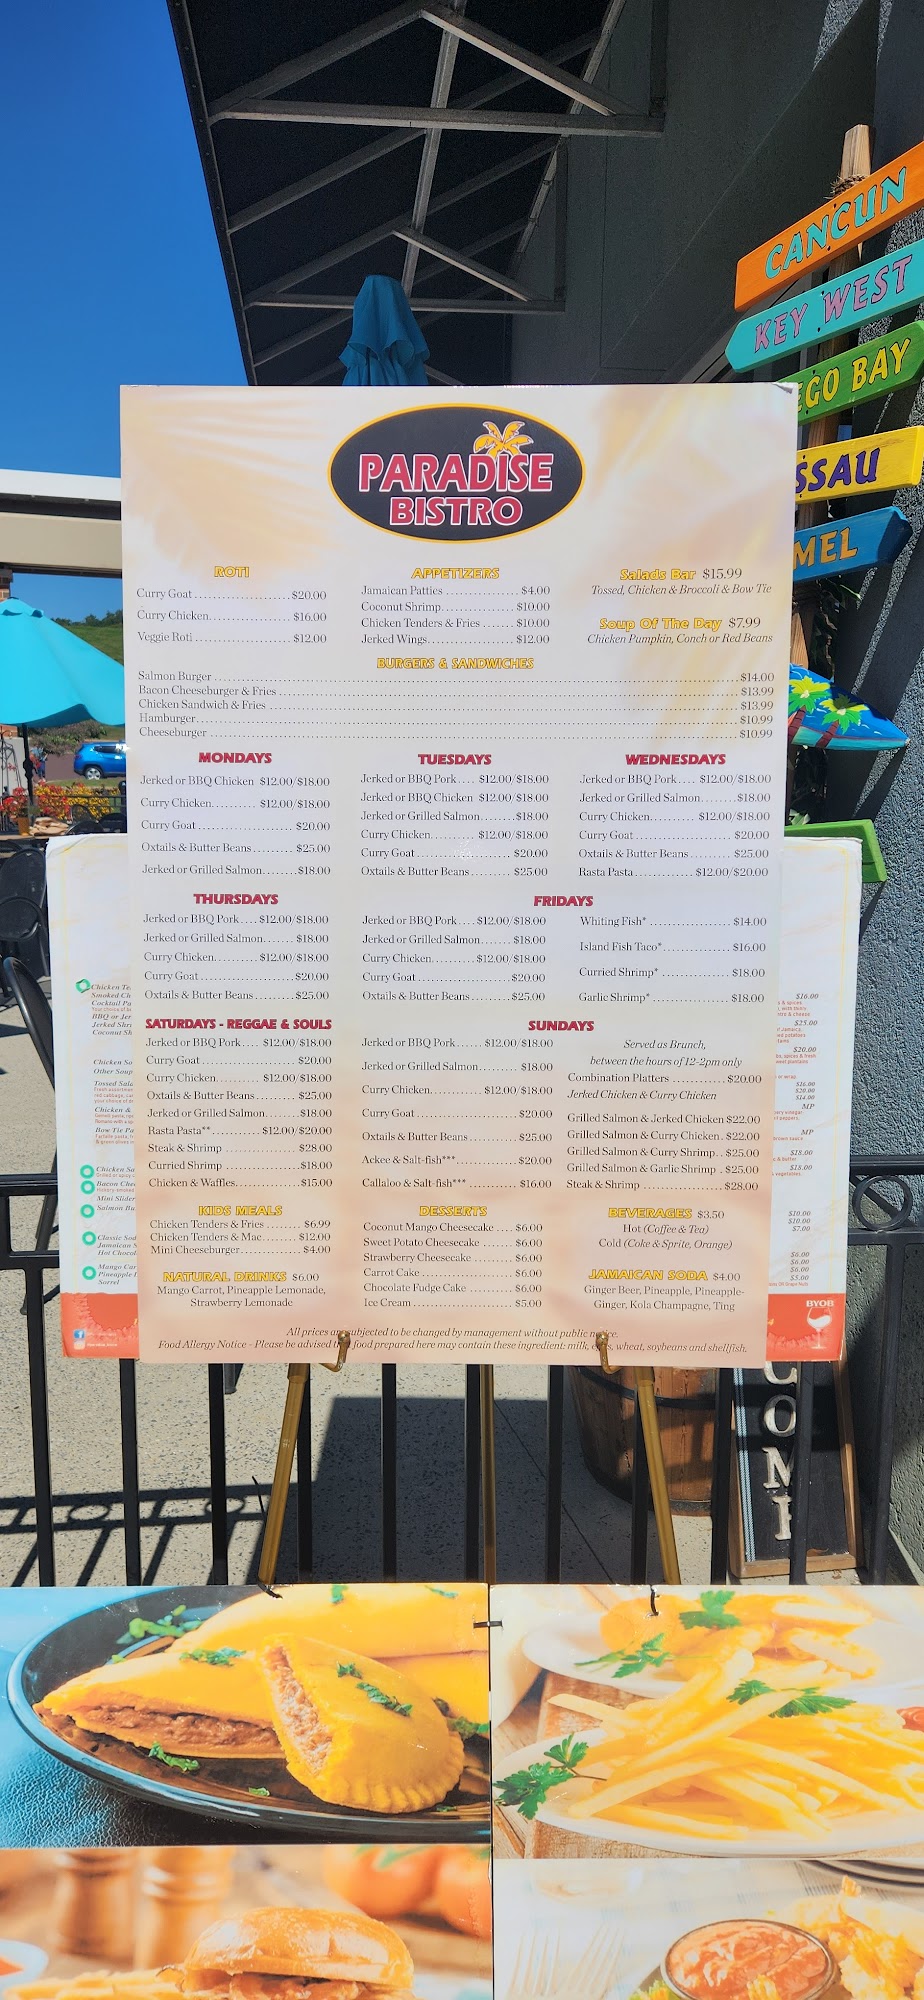 CANCUN
KEY WEST
EGO BAY
SSAU
MEL
PARADISE
BISTRO
ROTI
Curry Goat ................. $20.00
Curry Chicken................. $16.00
Veggie Roti ................. $12.00
APPETIZERS
Jamaican Patties ................. $4.00
Coconut Shrimp................. $10.00
Chicken Tenders & Fries ....... $10.00
Jerked Wings................. $12.00
Salads Bar $15.99
Tossed, Chicken & Broccoli & Bow Tie
Soup Of The Day $7.99
Chicken Pumpkin, Conch or Red Beans
BURGERS & SANDWICHES
Salmon Burger ................. $14.00
Bacon Cheeseburger & Fries ................. $13.99
Chicken Sandwich & Fries ................. $13.99
Hamburger................. $10.99
Cheeseburger ................. $10.99
MONDAYS
Jerked or BBQ Chicken $12.00/$18.00
Curry Chicken.......... $12.00/$18.00
Curry Goat ................. $20.00
Oxtails & Butter Beans......... $25.00
Jerked or Grilled Salmon....... $18.00
TUESDAYS
Jerked or BBQ Pork.... $12.00/$18.00
Jerked or BBQ Chicken $12.00/$18.00
Jerked or Grilled Salmon....... $18.00
Curry Chicken.......... $12.00/$18.00
Curry Goat ................. $20.00
Oxtails & Butter Beans......... $25.00
WEDNESDAYS
Jerked or BBQ Pork.... $12.00/$18.00
Jerked or Grilled Salmon....... $18.00
Curry Chicken.......... $12.00/$18.00
Curry Goat ................. $20.00
Oxtails & Butter Beans ......... $25.00
Rasta Pasta............ $12.00/$20.00
THURSDAYS
Jerked or BBQ Pork.... $12.00/$18.00
Jerked or Grilled Salmon....... $18.00
Curry Chicken.......... $12.00/$18.00
Curry Goat ................. $20.00
Oxtails & Butter Beans ......... $25.00
FRIDAYS
Jerked or BBQ Pork.... $12.00/$18.00
Jerked or Grilled Salmon....... $18.00
Curry Chicken.......... $12.00/$18.00
Curry Goat ................. $20.00
Oxtails & Butter Beans......... $25.00
Whiting Fish* ................. $14.00
Island Fish Taco*................. $16.00
Curried Shrimp* ................. $18.00
Garlic Shrimp* ................. $18.00
SATURDAYS - REGGAE & SOULS
Jerked or BBQ Pork.... $12.00/$18.00
Curry Goat ................. $20.00
Curry Chicken.......... $12.00/$18.00
Oxtails & Butter Beans......... $25.00
Jerked or Grilled Salmon....... $18.00
Rasta Pasta**.......... $12.00/$20.00
Steak & Shrimp ................. $28.00
Curried Shrimp ................. $18.00
Chicken & Waffles................. $15.00
SUNDAYS
Jerked or BBQ Pork..... $12.00/$18.00
Jerked or Grilled Salmon....... $18.00
Curry Chicken.......... $12.00/$18.00
Curry Goat ................. $20.00
Oxtails & Butter Beans ......... $25.00
Ackee & Salt-fish***............. $20.00
Callaloo & Salt-fish*** ......... $16.00
Served as Brunch,
between the hours of 12-2pm only
Combination Platters ........... $20.00
Jerked Chicken & Curry Chicken
Grilled Salmon & Jerked Chicken $22.00
Grilled Salmon & Curry Chicken. $22.00
Grilled Salmon & Curry Shrimp.. $25.00
Grilled Salmon & Garlic Shrimp . $25.00
Steak & Shrimp ................. $28.00
KIDS MEALS
Chicken Tenders & Fries ........ $6.99
Chicken Tenders & Mac........ $12.00
Mini Cheeseburger............. $4.00
NATURAL DRINKS $6.00
Mango Carrot, Pineapple Lemonade,
Strawberry Lemonade
DESSERTS
Coconut Mango Cheesecake .... $6.00
Sweet Potato Cheesecake ....... $6.00
Strawberry Cheesecake ......... $6.00
Carrot Cake ................. $6.00
Chocolate Fudge Cake ......... $6.00
Ice Cream ................. $5.00
BEVERAGES $3.50
Hot (Coffee & Tea)
Cold (Coke & Sprite, Orange)
JAMAICAN SODA $4.00
Ginger Beer, Pineapple, Pineapple-
Ginger, Kola Champagne, Ting
All prices subjected to be changed by management without public
Food Allergy Notice - Please be advised food prepared here may contain these ingredient: milk, wheat, soybeans and shellfish.
Chicken Te
Smoked Ch
Cocktail Pa
BBQ or Jer
Jerked Shri
Coconut Sh
Chicken So
Other Soup
Tossed Sala
Chicken &
Bow Tie Pa
Chicken Sa
Bacon Chee
Mini Slider
Salmon Bu
Classic Sod
Jamaican S
Hot Chocol
Mango Car
Pineapple L
Sorrel
$16.00
$25.00
$20.00
$16.00
$20.00
$14.00
MP
MP
$18.00
$18.00
$10.00
$10.00
$7.00
$6.00
$6.00
$6.00
$5.00
BYOB
COM